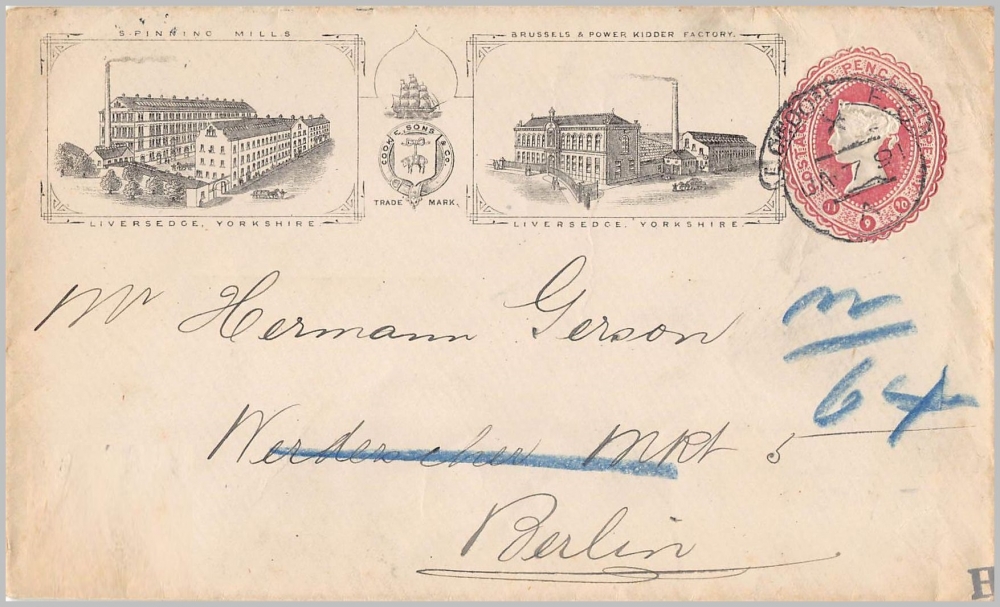 SPINNING MILLS
LIVERSEDGE, YORKSHIRE
COOKE, SONS & CO.
TRADE MARK.
BRUSSELS & POWER KIDDER FACTORY.
LIVERSEDGE, YORKSHIRE
POSTAGE TWO PENCE HALFPENNY
11 9 90
Mr Hermann Gerson
Werdescher Mkt 5
Berlin
64